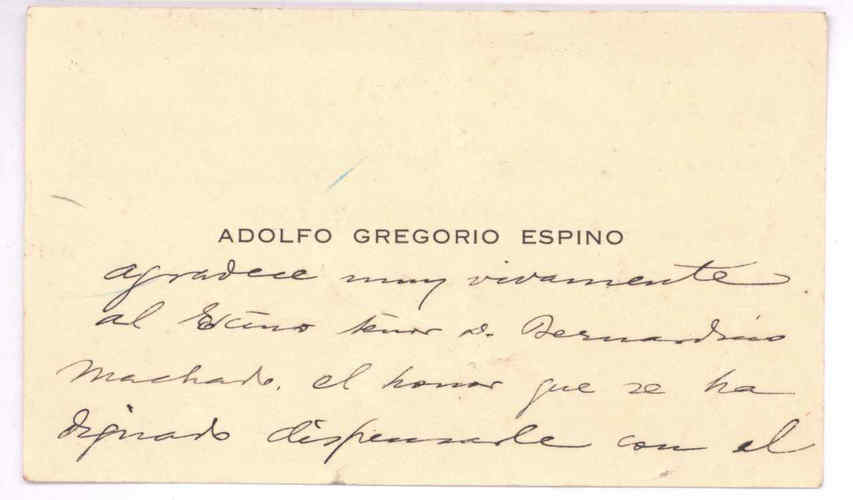 ADOLFO GREGORIO ESPINO
agradece muy vivamente
al Excmo señor D. Bernardino
Machado, el honor que se ha
dignado dispensarle con el